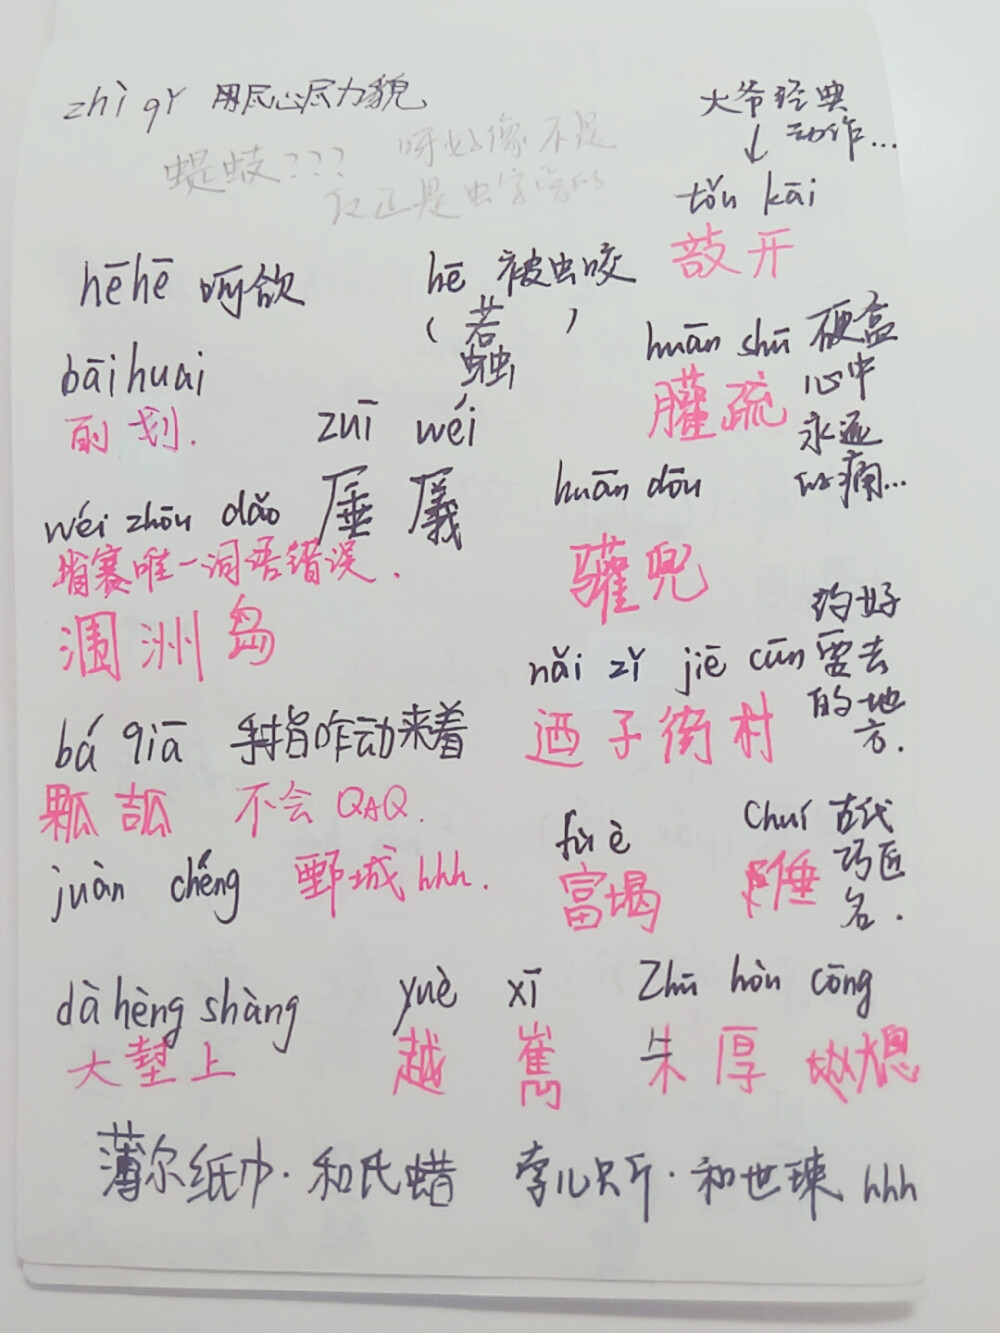 zhì qí 用尽心尽力貌
蜈蚑??? 呀好像不是
反正是虫字旁的
大爷经典
动作...
↓
tǒu kāi
敨开
hēhē 呵欱
hē 被虫咬
(蠚)
huān shū 硬盒
臛疏
心中
永远
的痛...
bāi huai
㓦划.
zuī wéi
厜㕒
wéi zhōu dǎo
省赛唯一词语错误.
涠洲岛
huān dōu
驩兜
nǎi zǐ jiē cūn
迺子街村
约好
要去
的地
方.
bá qiā 手指咋动来着
不会 QAQ.
juàn chéng 鄄城 hhh.
fù è
富堨
chuí 古代
巧匠
名.
dà hèng shàng
大堼上
yuè xī
越嶲
Zhū hòu cōng
朱厚熜
薄尔纸巾·和氏蜡
李儿只斤·和世㻋 hhh